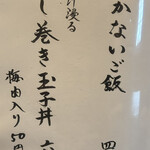 かないご飯 四
し巻き玉子丼 六
梅肉入り50円